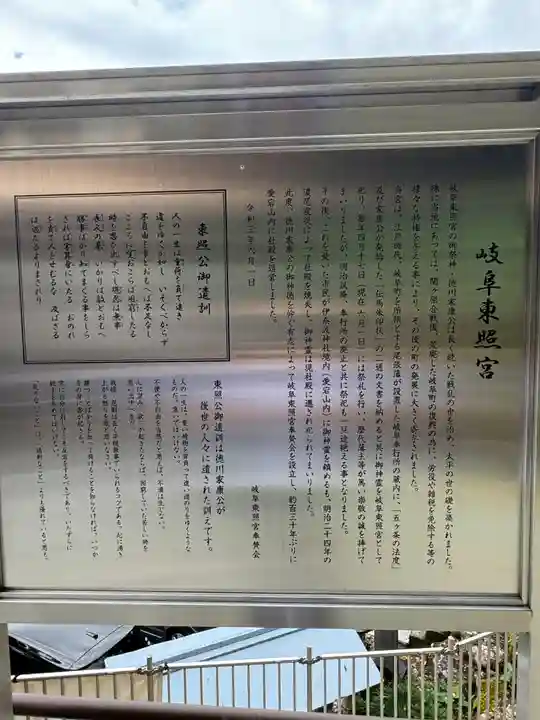 岐阜東照宮
岐阜東照宮の御祭神、徳川家康公は長く続いた戦乱の世を治め、太平の世の礎を築かれました。
殊に当地にあっては、関ヶ原合戦後、荒廃した岐阜町の復興の為に、労役や雑税を免除する等の
様々な特権を与える事により、その後の町の発展に大きく寄与されました。
当宮は、江戸時代、岐阜町を所領とする尾張藩が設置した岐阜奉行所の蔵内に、「五ヶ条の法度」
及び家康公が発給した「伝馬朱印状」の二通の文書を納めると共に御神霊を岐阜東照宮として
祀り、毎年四月十七日（現在六月一日）には祭礼を行い、歴代藩主等が篤い崇敬の誠を捧げて
まいりましたが、明治以降、奉行所の廃止と共に祭祀も一旦途絶える事となりました。
その後、これを憂いた市民が伊奈波神社境内（愛宕山内）に御神霊を鎮めるも、明治二十四年の
濃尾震災によって社殿を焼失し、御神霊は現社殿に遷され祀られてまいりました。
此度、徳川家康公の御神徳を仰ぐ有志によって岐阜東照宮奉賛会を設立し、約百三十年ぶりに
愛宕山内に社殿を造営しました。
令和三年六月一日
岐阜東照宮奉賛会
東照公御遺訓
人の一生は重荷を負て遠き
道をゆくが如し いそぐべからず
不自由を常とおもへば不足なし
こころに望おこらば困窮したる
時を思ひ出すべし 堪忍は無事
長久の基 いかりは敵とおもへ
勝事ばかり知てまくる事をしら
ざれば害其身にいたる おのれ
を責て人をせむるな 及ばざる
は過たるよりまされり
東照公御遺訓は徳川家康公が
後世の人々に遺された訓えです。
人の一生は、重い荷物を背負って遠い道のりをゆくような
ものだ。急いではいけない。
不便や不自由を当然だと思えば、不満は生じない。
心に欲が起きたならば、困窮していた苦しい時を
思い出すことだ。